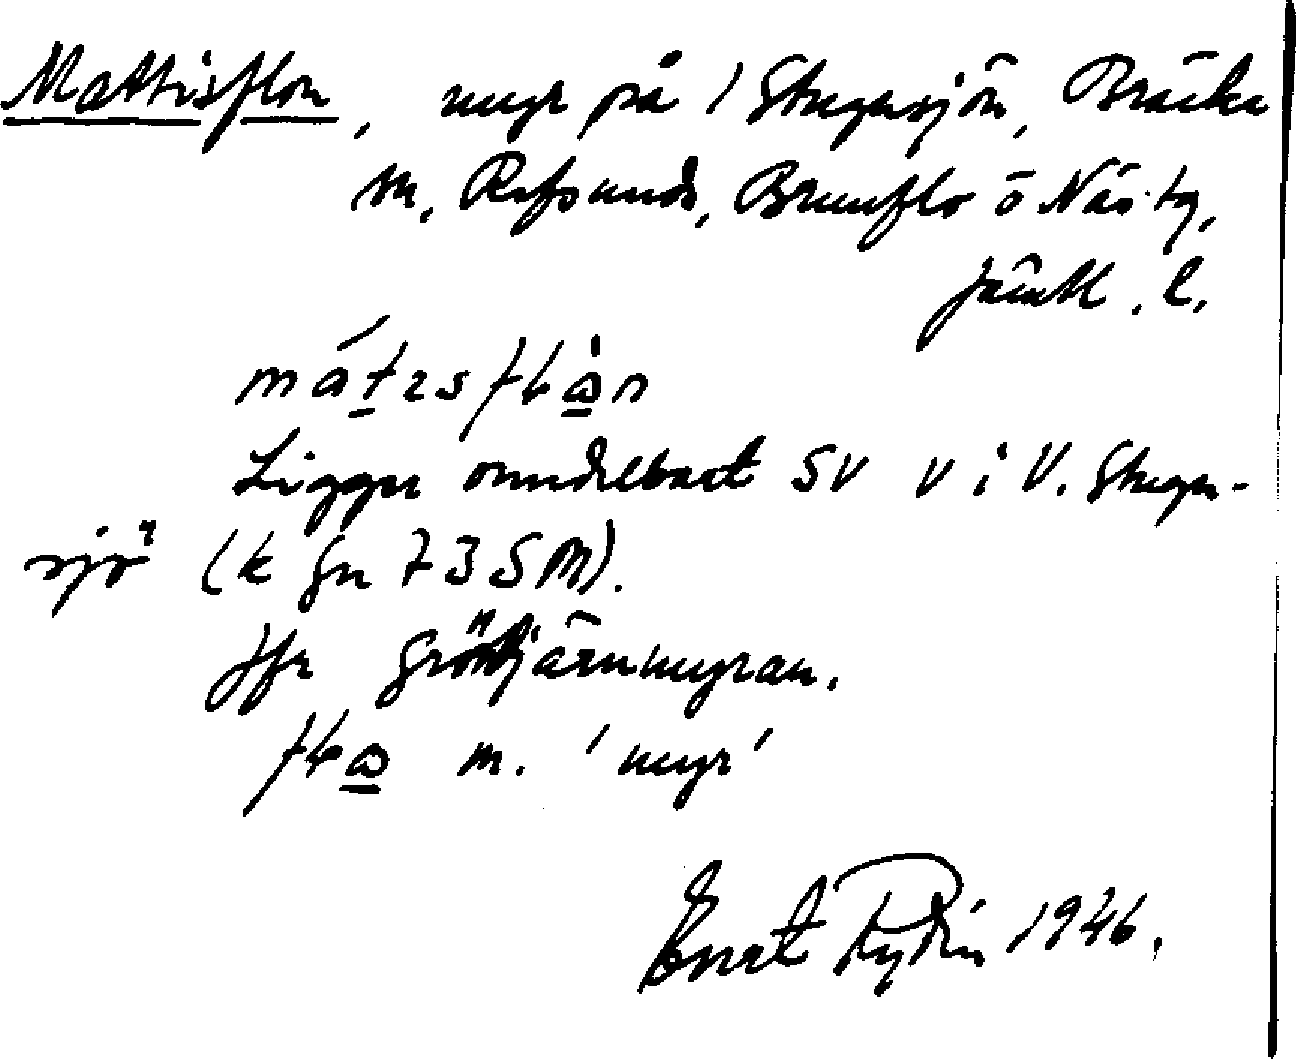 Mattisflon, myr på 1 Stugusjön, Bräcke
m, Refsunds, Brunflo o Näs tg,
Jämtl. l.
Ligger omedelbart SV v i V. Stugu-
sjö (k Gn 73 SM).
Jfr Gröntjärnmyran.
m. 'myr'
Evert Rydin 1946.